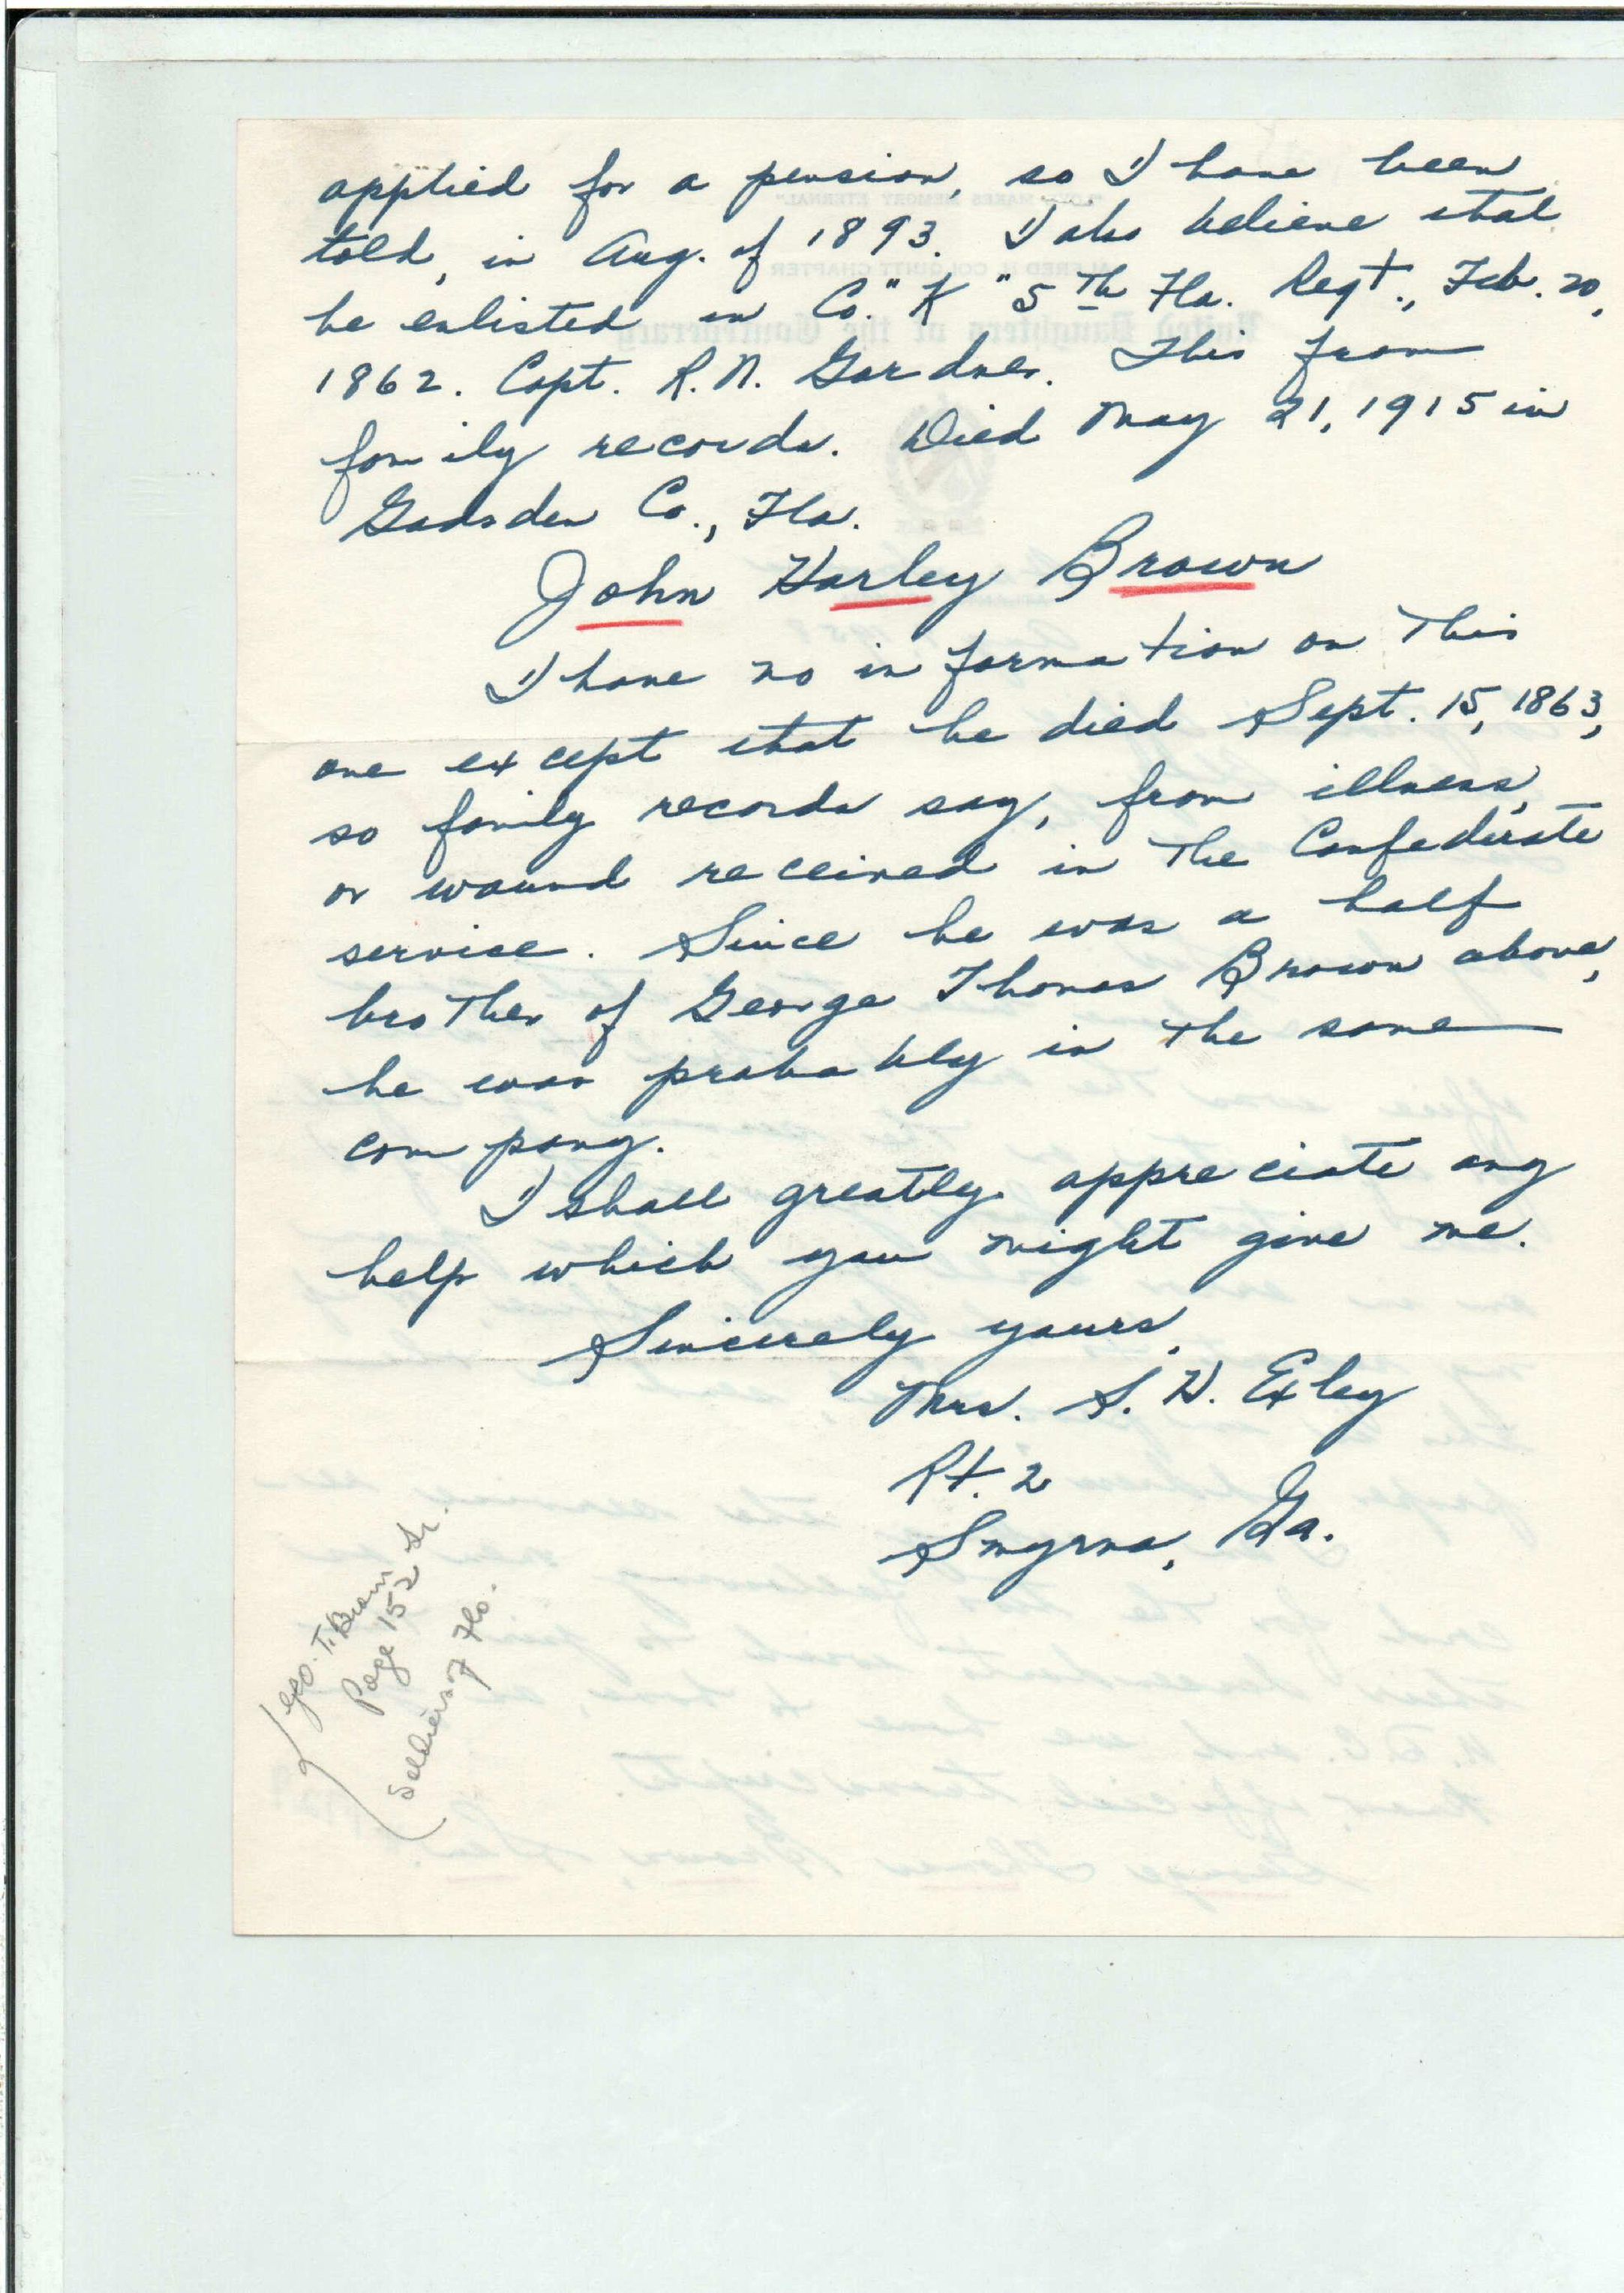 applied for a pension, so I have been
told, in Aug. of 1893. I also believe that
he enlisted in Co. "K" 5th Fla. Regt., Feb. 20,
1862. Capt. R. N. Gardner. This from
family records. Died May 21, 1915 in
Gadsden Co., Fla.
John Harley Brown
I have no information on this
one except that he died Sept. 15, 1863,
so family records say, from illness
or wound received in the Confederate
service. Since he was a half
brother of George Thomas Brown above,
he was probably in the same
company.
I shall greatly appreciate any
help which you might give me.
Sincerely yours,
Mrs. S. H. Exley
Rt. 2
Smyrna, Ga.
Geo. T. Brown Sr.
Page 152
Soldiers of Fla.